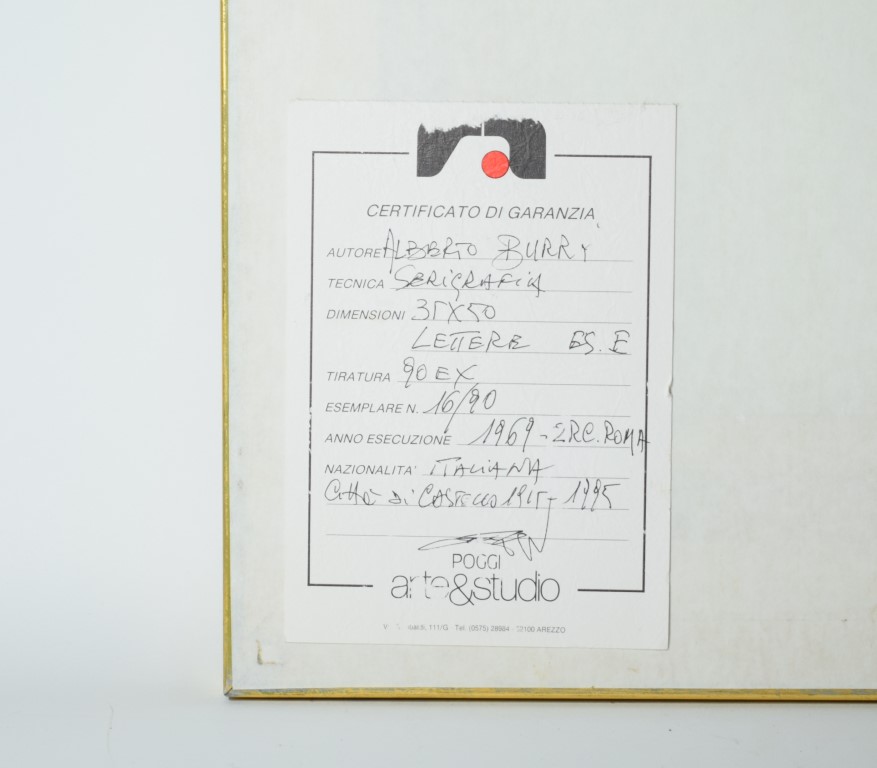 CERTIFICATO DI GARANZIA
AUTORE ALBERTO BURRI
TECNICA SERIGRAFIA
DIMENSIONI 35X50
LETTERE ES. E
TIRATURA 90 EX
ESEMPLARE N. 16/90
ANNO ESECUZIONE 1969 - 2RC. ROMA
NAZIONALITA' ITALIANA
Città Di CASTELLO 1915 - 1995
POGGI
arte&studio
111/G Tel. (0575) 28664 - 52100 AREZZO